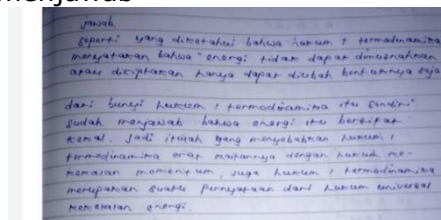 menjawab
Jawab.
Seperti yang diketahui bahwa hukum 1 termodinamika
menyatakan bahwa "energi tidak dapat dimusnahkan
atau diciptakan hanya dapat diubah bentuknya saja
dari bunyi hukum 1 termodinamika itu sendiri
sudah menjawab bahwa energi itu bersifat
kekal. Jadi itulah yang menyebabkan hukum 1
termodinamika erat kaitannya dengan hukum ke-
kekalan momentum, juga hukum 1 termodinamika
merupakan suatu pernyataan dari hukum universal
kekekalan energi.